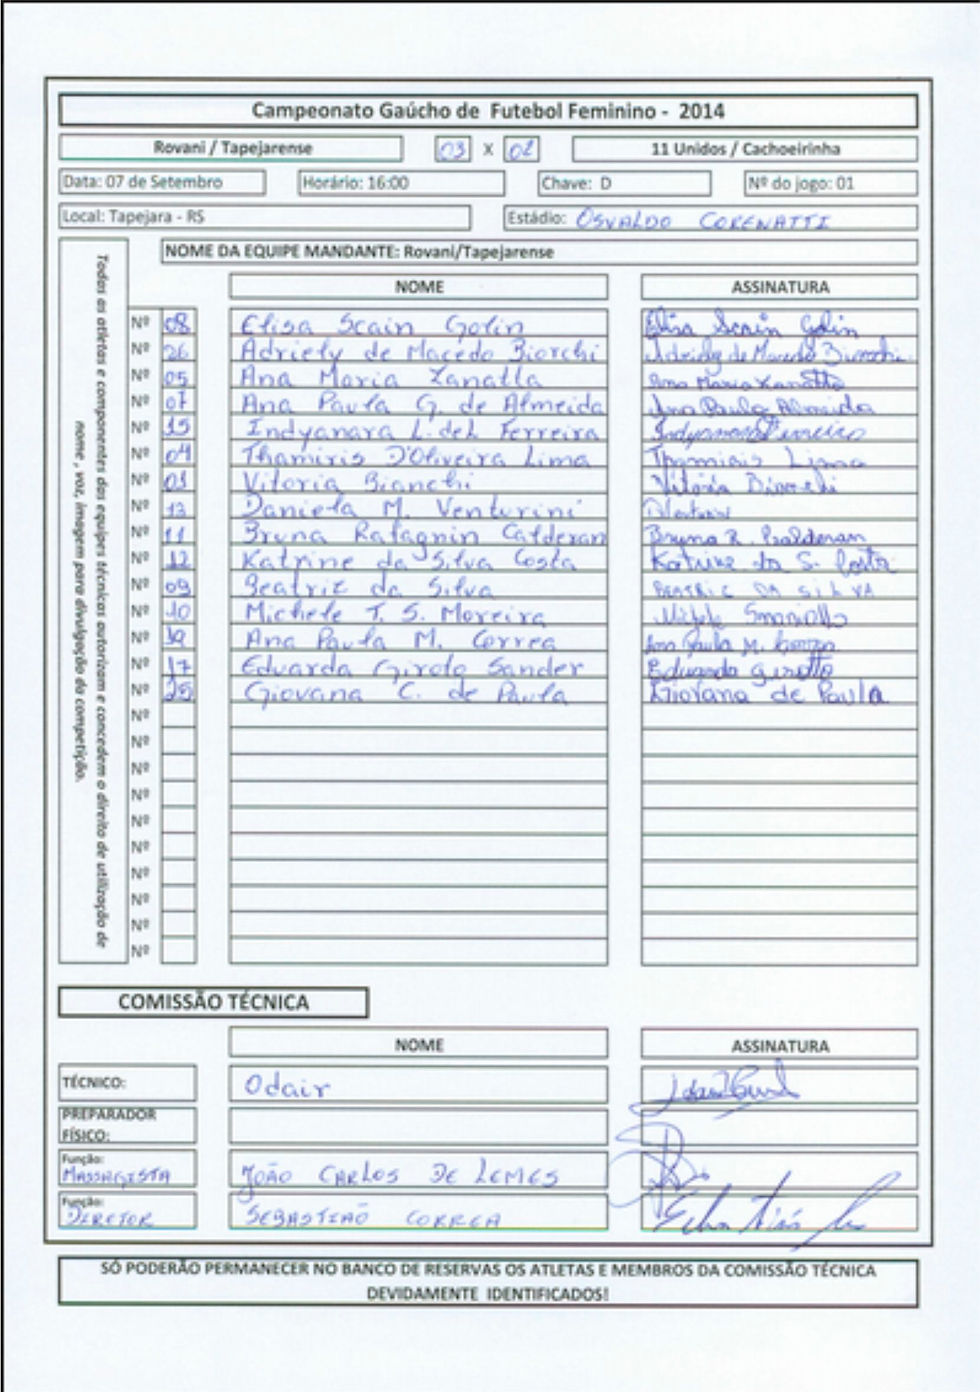 Campeonato Gaúcho de Futebol Feminino - 2014
Rovani / Tapejarense 03 X 02 11 Unidos / Cachoeirinha
Data: 07 de Setembro Horário: 16:00 Chave: D Nº do jogo: 01
Local: Tapejara - RS Estádio: OSVALDO CORENATTI
NOME DA EQUIPE MANDANTE: Rovani/Tapejarense
Todas as atletas e componentes das equipes técnicas autorizam e concedem o direito de utilização de
nome, voz, imagem para divulgação da competição.
NOME ASSINATURA
Nº 08 Elisa Scain Golin Elisa Scain Golin
Nº 26 Adriely de Macedo Biorchi Adriely de Macedo
Nº 05 Ana Maria Zanatta Ana Maria Zanatta
Nº 07 Ana Paula G. de Almeida Ana Paula Almeida
Nº 15 Indyanara L. del Ferreira Indyanara Ferreira
Nº 04 Thamiris D'Oliveira Lima Thamiris Lima
Nº 01 Vitoria Bianchi Vitória Bianchi
Nº 13 Daniela M. Venturini
Nº 11 Bruna Ratagnin Calderan Bruna R. Calderan
Nº 12 Katrine da Silva Costa Katrine da S. Costa
Nº 09 Beatriz da Silva BEATRIZ DA SILVA
Nº 10 Michele T. S. Moreira Michele
Nº 19 Ana Paula M. Correa Ana Paula M. Correa
Nº 17 Eduarda Giroto Sander Eduarda Girotto
Nº 25 Giovana C. de Paula Giovana de Paula
Nº
Nº
Nº
Nº
Nº
Nº
Nº
Nº
Nº
Nº
COMISSÃO TÉCNICA
NOME ASSINATURA
TÉCNICO: Odair
PREPARADOR
FÍSICO:
Função:
MASSAGISTA JOÃO CARLOS DE LEMES
Função:
DIRETOR SEBASTIÃO CORREA
SÓ PODERÃO PERMANECER NO BANCO DE RESERVAS OS ATLETAS E MEMBROS DA COMISSÃO TÉCNICA
DEVIDAMENTE IDENTIFICADOS!